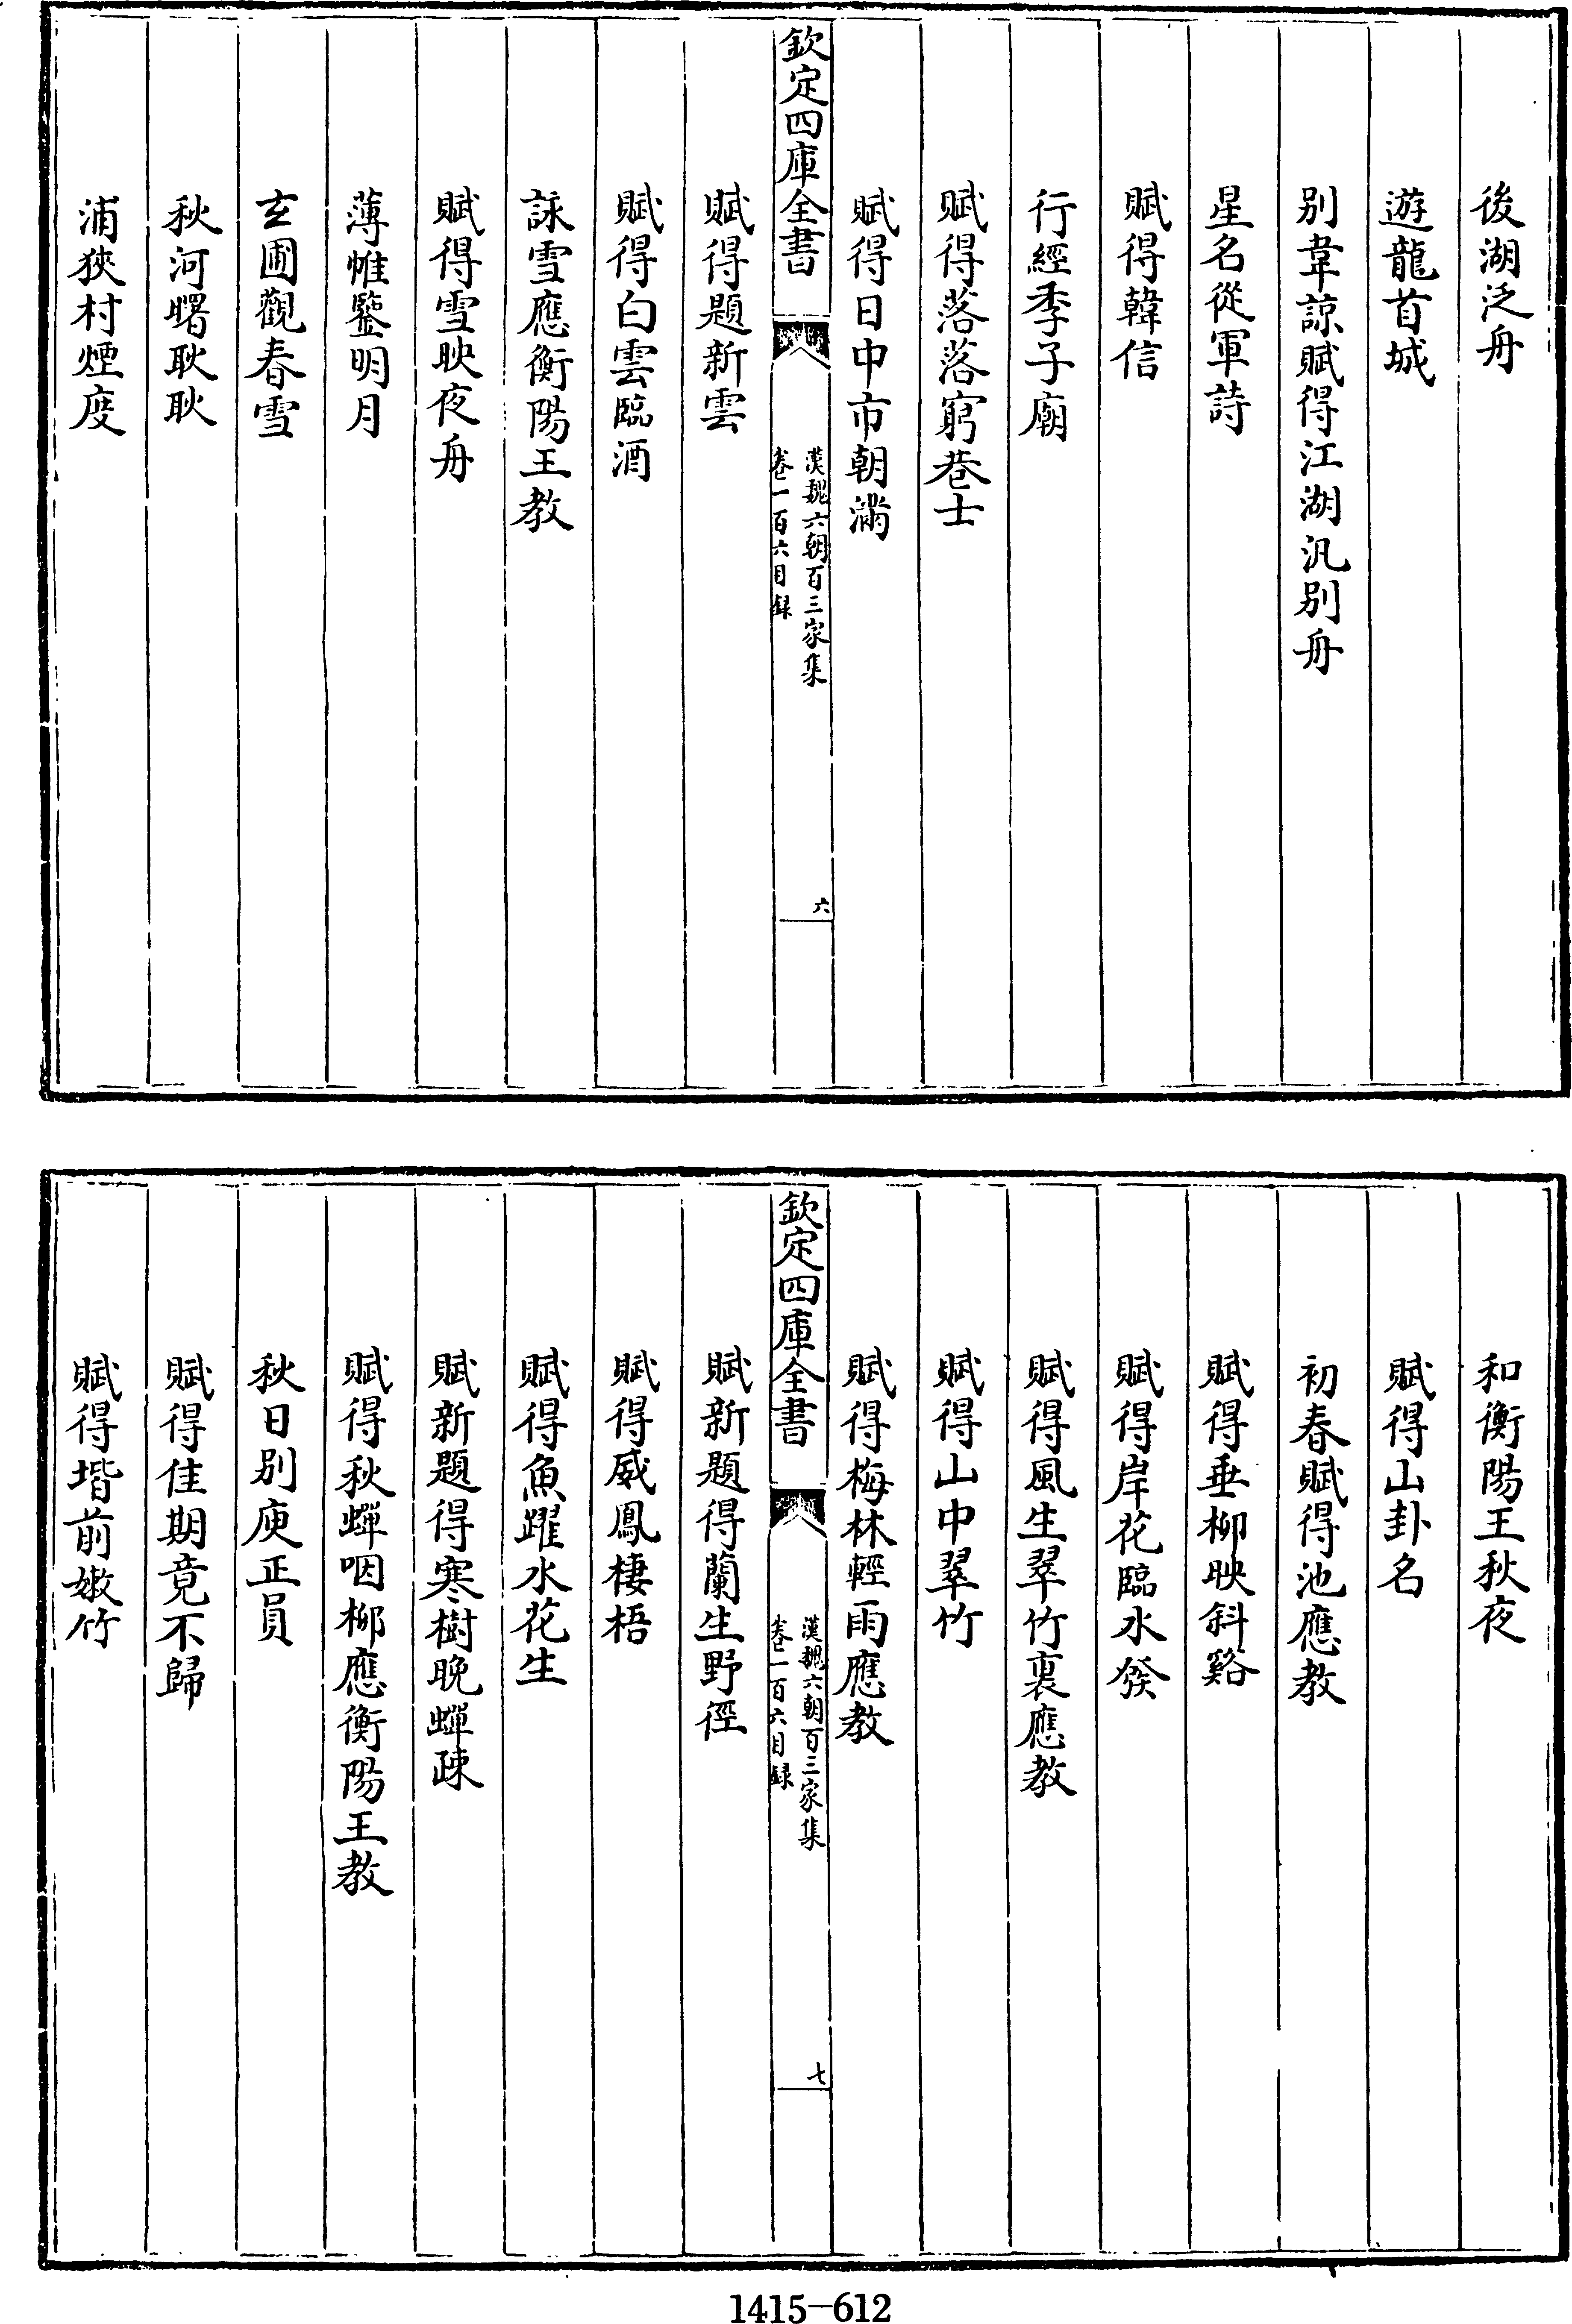 後湖泛舟
遊龍首城
别韋諒賦得江湖汎别舟
星名從軍詩
賦得韓信
行經季子廟
賦得落落窮巷士
賦得日中市朝滿
欽定四庫全書
漢魏六朝百三家集
卷一百六目録
六
賦得題新雲
賦得白雲臨酒
詠雪應衡陽王教
賦得雪映夜舟
薄帷鑒明月
玄圃觀春雪
秋河曙耿耿
浦狹村煙度
和衡陽王秋夜
賦得山卦名
初春賦得池應教
賦得垂柳映斜谿
賦得岸花臨水發
賦得風生翠竹裏應教
賦得山中翠竹
賦得梅林輕雨應教
欽定四庫全書
漢魏六朝百三家集
卷一百六目録
七
賦新題得蘭生野徑
賦得威鳳棲梧
賦得魚躍水花生
賦新題得寒樹晚蟬疎
賦得秋蟬咽柳應衡陽王教
秋日别庾正員
賦得佳期竟不歸
賦得堦前嫩竹
1415-612